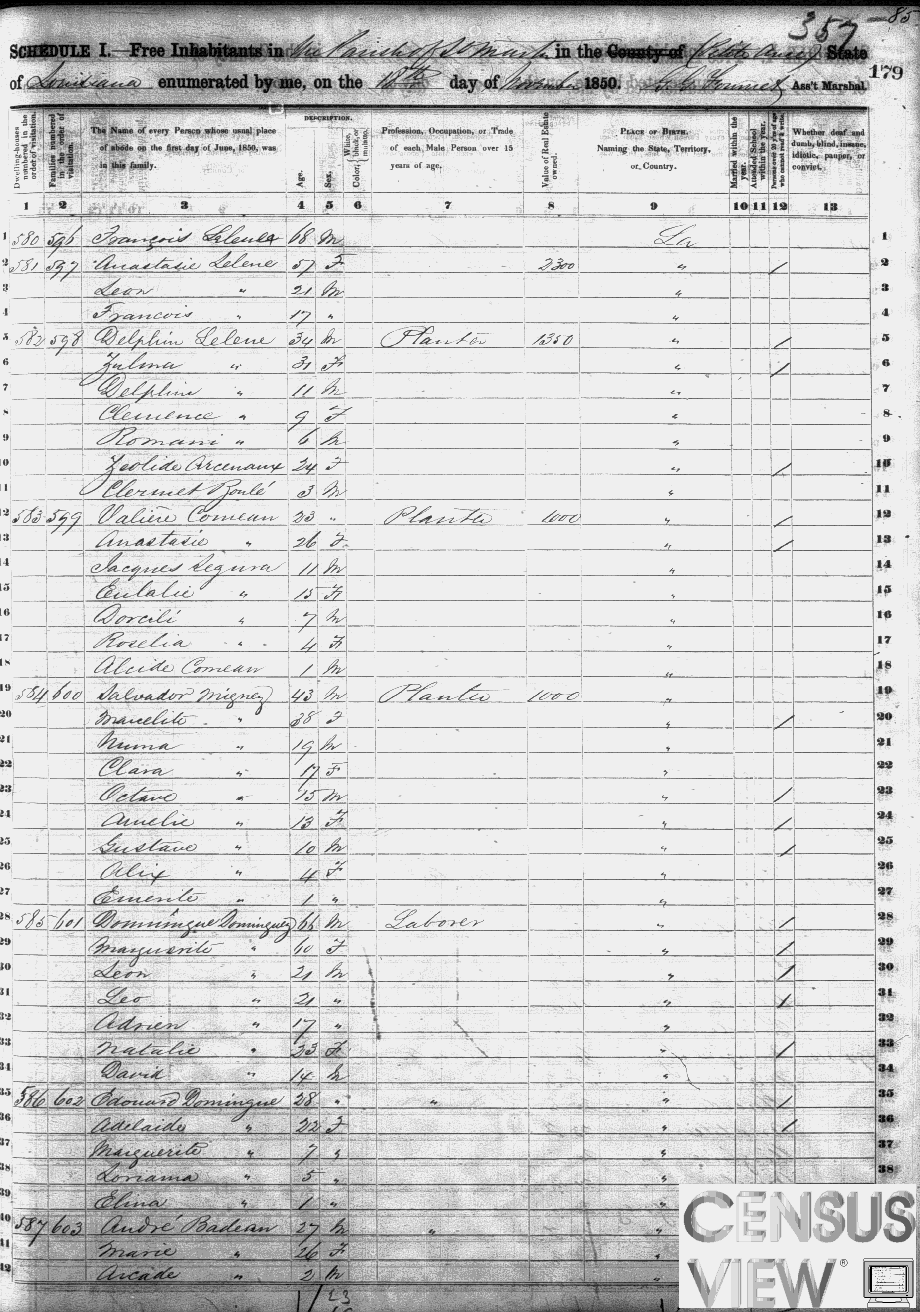 357 85
SCHEDULE I.—Free Inhabitants in the Parish of St Martin in the County of State
179
of Louisiana enumerated by me, on the 18th day of November 1850. Ass't Marshal.
Dwelling-houses numbered in the order of visitation.
Families numbered in the order of visitation.
The Name of every Person whose usual place of abode on the first day of June, 1850, was in this family.
DESCRIPTION.
Age.
Sex.
Color, White, black, or mulatto.
Profession, Occupation, or Trade of each Male Person over 15 years of age.
Value of Real Estate owned.
PLACE OF BIRTH. Naming the State, Territory, or Country.
Married within the year.
Attended School within the year.
Persons over 20 y'rs of age who cannot read & write.
Whether deaf and dumb, blind, insane, idiotic, pauper, or convict.
1 2 3 4 5 6 7 8 9 10 11 12 13
1 580 596 François 68 M La 1
2 581 597 Anastasie Lelene 57 F 2300 " / 2
3 Leon " 21 M " 3
4 Francois " 17 " " 4
5 582 598 Delphin Lelene 34 M Planter 1350 " / 5
6 Zulma " 31 F " / 6
7 Delphin " 11 M " 7
8 Clemence " 9 F " 8
9 Romain " 6 M " 9
10 Zeolide Arcenaux 24 F " / 10
11 Clermet Boulé 3 M " 11
12 583 599 Valière Comeau 23 " Planter 1000 " / 12
13 Anastasie " 26 F " / 13
14 Jacques Segura 11 M " 14
15 Eulalie " 15 F " 15
16 Dorcili " 7 M " 16
17 Roselia " 4 F " 17
18 Alcide Comeau 1 M " 18
19 584 600 Salvador Migney 43 M Planter 1000 " 19
20 Marcelite " 38 F " / 20
21 Numa " 19 M " 21
22 Clara " 17 F " 22
23 Octave " 15 M " / 23
24 Amelie " 13 F " / 24
25 Gustave " 10 M " / 25
26 Alix " 4 F " 26
27 Emente " 1 " " 27
28 585 601 Dominingue Dominguez 66 M Laborer " / 28
29 Marguerite " 60 F " / 29
30 Leon " 21 M " / 30
31 Leo " 21 " " / 31
32 Adrien " 17 " " 32
33 Natalie " 23 F " / 33
34 David " 14 M " 34
35 586 602 Edouard Domingue 28 " " " / 35
36 Adelaide " 22 F " / 36
37 Marguerite " 7 " " 37
38 Loriama " 5 " " 38
39 Elina " 1 " "
40 587 603 André Badeau 27 M " "
41 Marie " 26 F "
42 Arcade " 2 M "
CENSUS
VIEW®